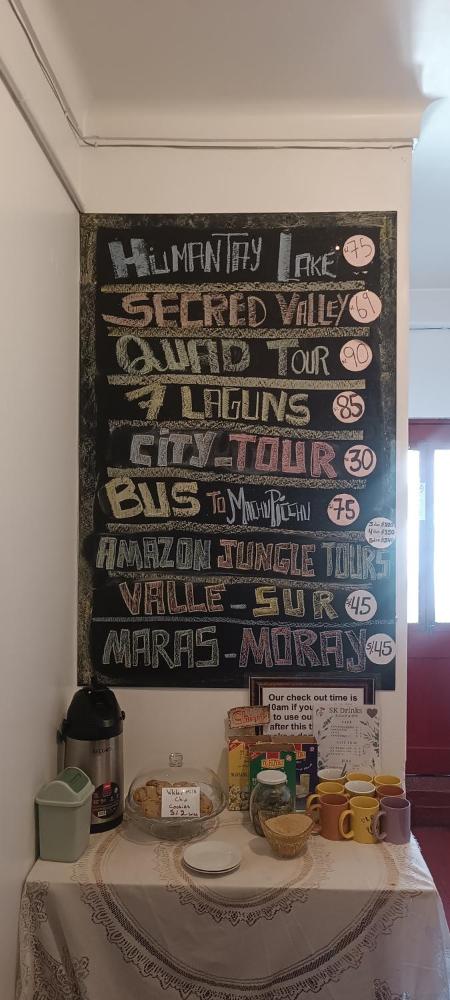 HUMANTAY LAKE 75
SECRED VALLEY 69
QUAD TOUR 90
7 LAGUNS 85
CITY-TOUR 30
BUS TO MACHUPICCHU 75
AMAZON JUNGLE TOURS
VALLE - SUR 45
MARAS - MORAY S/45
Our check out time is
0am if you
to use ou
after this t
SK Drinks
White Milk
Chip
Cookies
S/2